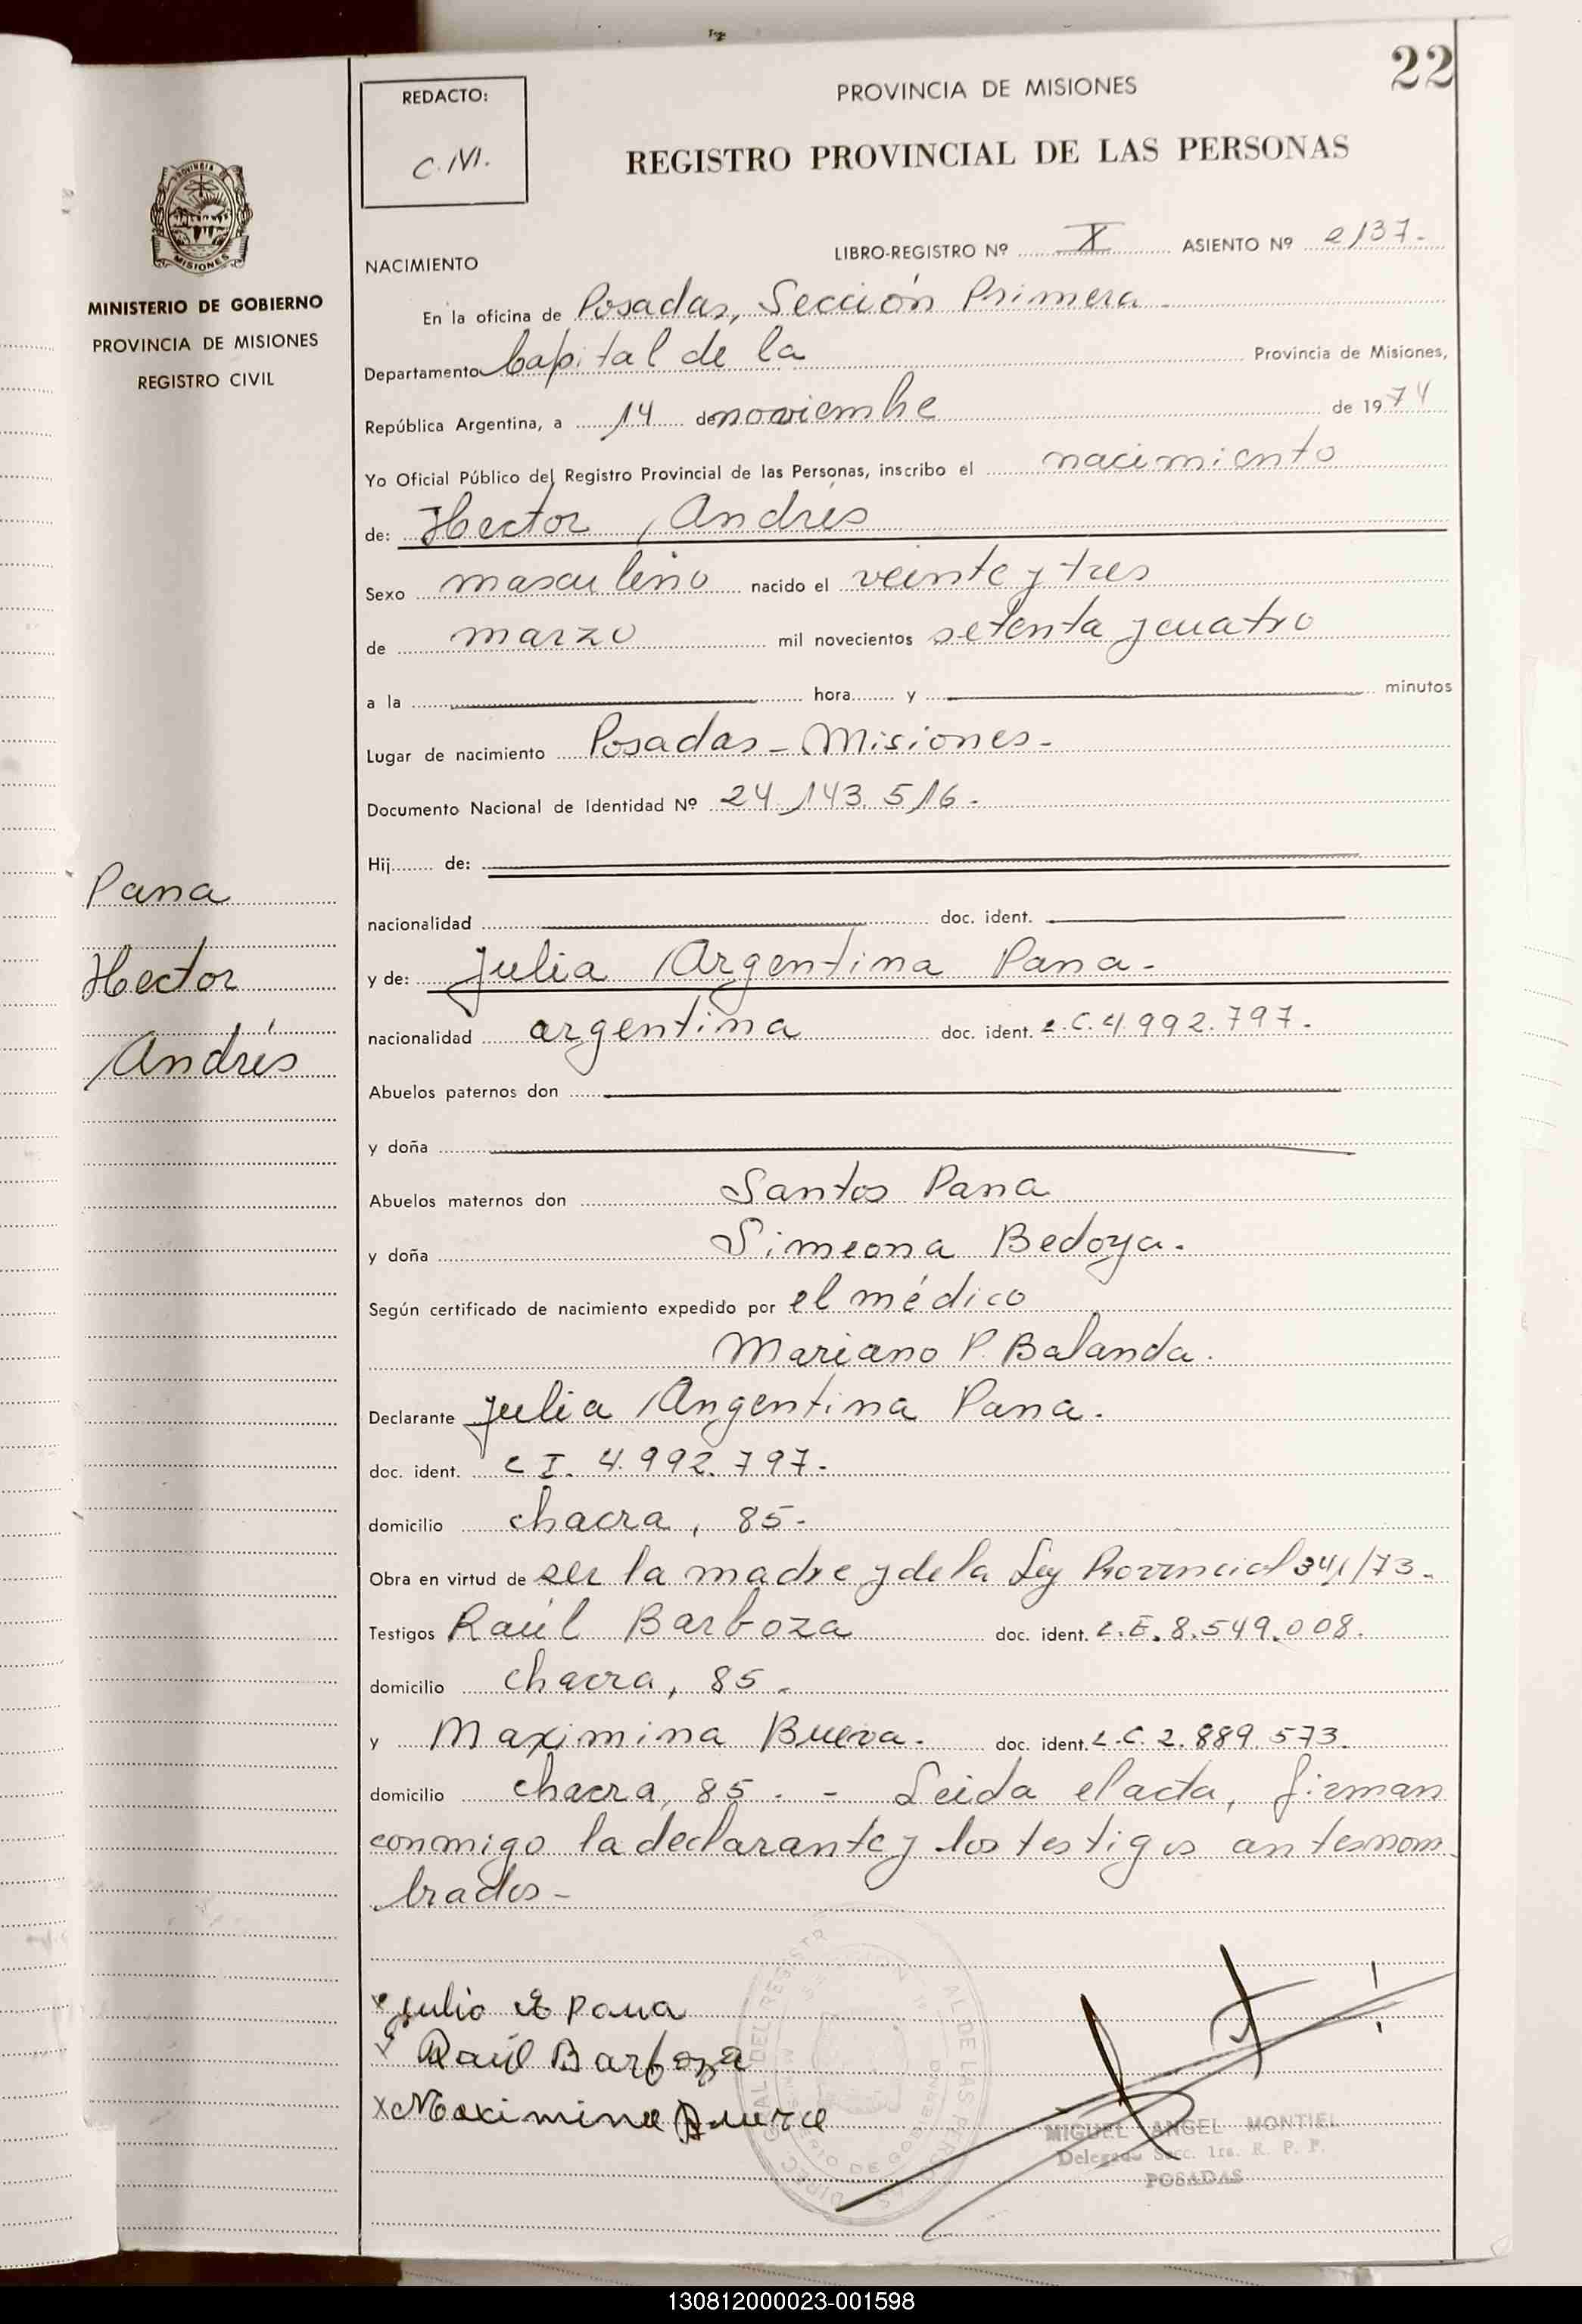 22
REDACTO:
C.M.
PROVINCIA DE MISIONES
REGISTRO PROVINCIAL DE LAS PERSONAS
PROVINCIA
MISIONES
MINISTERIO DE GOBIERNO
PROVINCIA DE MISIONES
REGISTRO CIVIL
Pana
Hector
Andrés
NACIMIENTO LIBRO-REGISTRO Nº X ASIENTO Nº 2137.-
En la oficina de Posadas, Sección Primera
Departamento Capital de la Provincia de Misiones,
República Argentina, a 14 de noviembre de 1974
Yo Oficial Público del Registro Provincial de las Personas, inscribo el nacimiento
de: Hector Andrés
Sexo masculino nacido el veinte y tres
de marzo mil novecientos setenta y cuatro
a la hora y minutos
Lugar de nacimiento Posadas - Misiones.-
Documento Nacional de Identidad Nº 24.143.516.-
Hij de:
nacionalidad doc. ident.
y de: Julia Argentina Pana.-
nacionalidad argentina doc. ident. L.C. 4.992.797.-
Abuelos paternos don
y doña
Abuelos maternos don Santos Pana
y doña Simeona Bedoya.
Según certificado de nacimiento expedido por el médico
Mariano P. Balanda.
Declarante Julia Angentina Pana.
doc. ident. C I. 4.992.797.-
domicilio chacra, 85.-
Obra en virtud de ser la madre y de la Ley Provincial 341/73.-
Testigos Raúl Barboza doc. ident. L.E. 8.549.008.
domicilio chacra, 85.-
y Maximina Bueva.- doc. ident. L.C. 2.889.573.
domicilio chacra, 85.- - Leida el acta, firman
conmigo la declarante y los testigos antesnom
brados-
Raúl Barboza
MIGUEL ANGEL MONTIEL
Delegado Secc. 1ra. R. P. P.
POSADAS
130812000023-001598